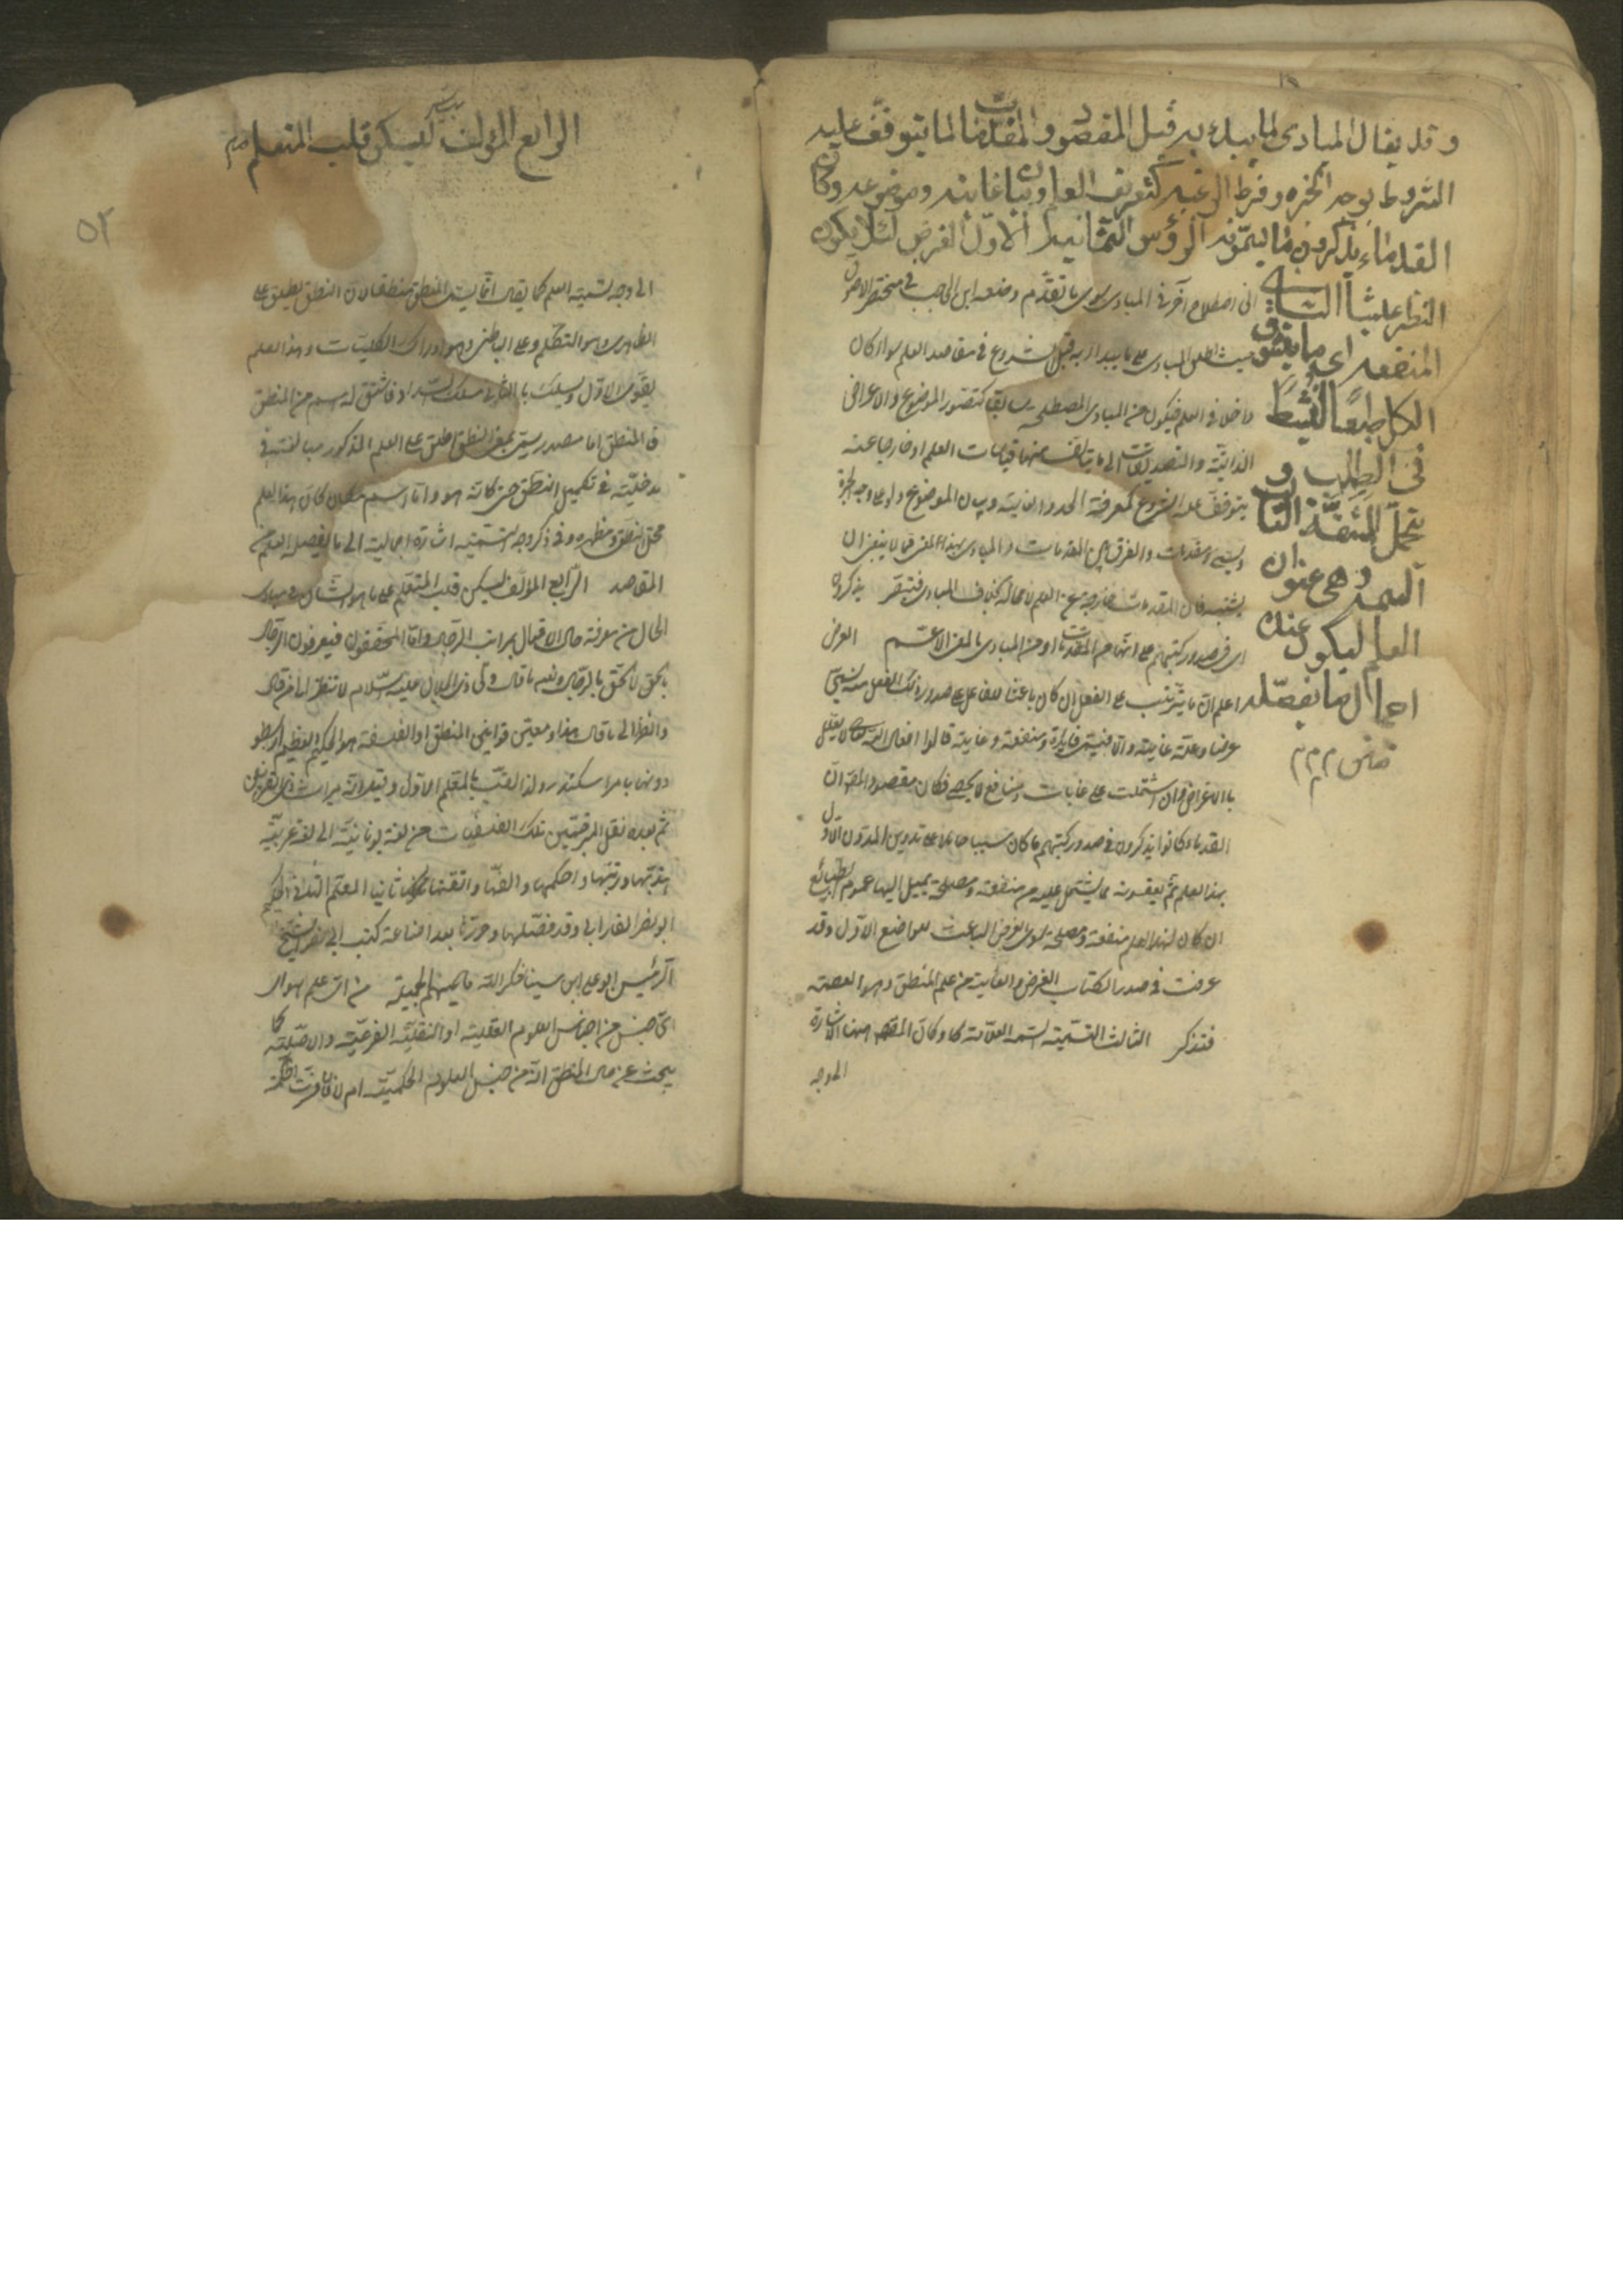 وقد يقال المبادى لما يبدء به قبل المقصود والمقدمات لما يتوقف عليه
الشروع بوجه الخبرة وفرط الرغبة كتعريف العلم وبيان غايته وموضوعه وكان
القدماء يذكرون ما يسمونه الرؤس الثمانية الاول الغرض لئلا يكون
النظر عبثا الثاني
المنفعة اى ما يتشوق
الكل طبعا لينشط
في الطلب و
يتحمل المشقة الثالث
السمة وهى عنوان
العلم ليكون عنده
اجمال ما يفصله
اشارة الى اصطلاح آخر في المبادى سوى ما تقدم وضعه ابن الحاجب في مختصر الاصول
حيث اطلق المبادى على ما يبدأ به قبل الشروع في مقاصد العلم سواء كان
داخلا في العلم فيكون من المبادى المصطلحة سابقا كتصور الموضوع والاعراض
الذاتية والتصديقات التى يتألف منها قياسات العلم او خارجا عنه
يتوقف عليه الشروع كمعرفة الحد والغاية وبيان الموضوع على وجه الخبرة
ويسمى مقدمات والفرق بين المقدمات والمبادى بهذا المعنى مما لا ينبغى ان
يشتبه فان المقدمات خارجة عن العلم لا محالة بخلاف المبادى فتبصر يذكرون
اى في صدور كتبهم على انها من المقدمات او من المبادى بالمعنى الاعم الغرض
اعلم ان ما يترتب على الفعل ان كان باعثا للفاعل على صدور ذلك الفعل منه يسمى
غرضا وعلة غائية والا فيسمى فايدة ومنفعة وغاية قالوا افعال الله تعالى لا يعلل
بالاغراض وان اشتملت على غايات ومنافع لا تحصى فكان مقصود المصر ان
القدماء كانوا يذكرون في صدور كتبهم ما كان سببا حاملا على تدوين المدون الاول
بهذا العلم ثم يعقبونه بما يشتمل عليه من منفعة ومصلحة يميل اليها عموم الطبائع
ان كان لهذا العلم منفعة ومصلحة سوى الغرض الباعث للواضع الاول وقد
عرفت في صدر الكتاب الغرض والغاية من علم المنطق وهو العصمة
فتذكر الثالث التسمية السمة العلامة وكان المقصود ههنا الاشارة
الى وجه
الرابع المؤلف ليسكن قلب المتعلم
٥٢
الى وجه تسمية العلم كما يقال انما يسمى المنطق منطقا لان النطق يطلق على
الظاهرى وهو التكلم وعلى الباطنى وهو ادراك الكليات وهذا العلم
يقوى الاول ويسلك بالثانى مسلك السداد فاشتق له اسم من النطق
فالمنطق اما مصدر ميمى بمعنى النطق اطلق على العلم المذكور مبالغة في
مدخليته في تكميل النطق حتى كانه هو واما اسم مكان كان هذا العلم
محل النطق ومظهره وفي ذكر وجه التسمية اشارة اجمالية الى ما يفصله العلم من
المقاصد الرابع المؤلف ليسكن قلب المتعلم على ما هو الشان في مبادى
الحال من معرفة حال الاقوال بمراتب الرجال واما المحققون فيعرفون الرجال
بالحق لا الحق بالرجال ونعم ما قال ولى ذى الجلال عليه سلام لا تنظر الى من قال
وانظر الى ما قال هذا ومعنى قوانين المنطق والفلسفة هو الحكيم العظيم ارسطو
دونها بامر اسكندر ولذا لقب بالمعلم الاول وقيل انه ميراث ذى القرنين
ثم بعده نقل المترجمين تلك الفلسفيات من لغة يونانية الى لغة عربية
هذبها ورتبها واحكمها واتقنها ثانيا المعلم الثانى الحكيم
ابو نصر الفارابى وقد فصلها وحررها بعد اضاعة كتب ابى نصر الشيخ
الرئيس ابو على ابن سينا شكر الله مساعيهم الجميلة من اى علم هو اى
اى جنس من اجناس العلوم العقلية او النقلية الفرعية والاصلية كما
يبحث عن حال المنطق انه من جنس العلوم الحكمية ام لا فان فسرت الحكمة